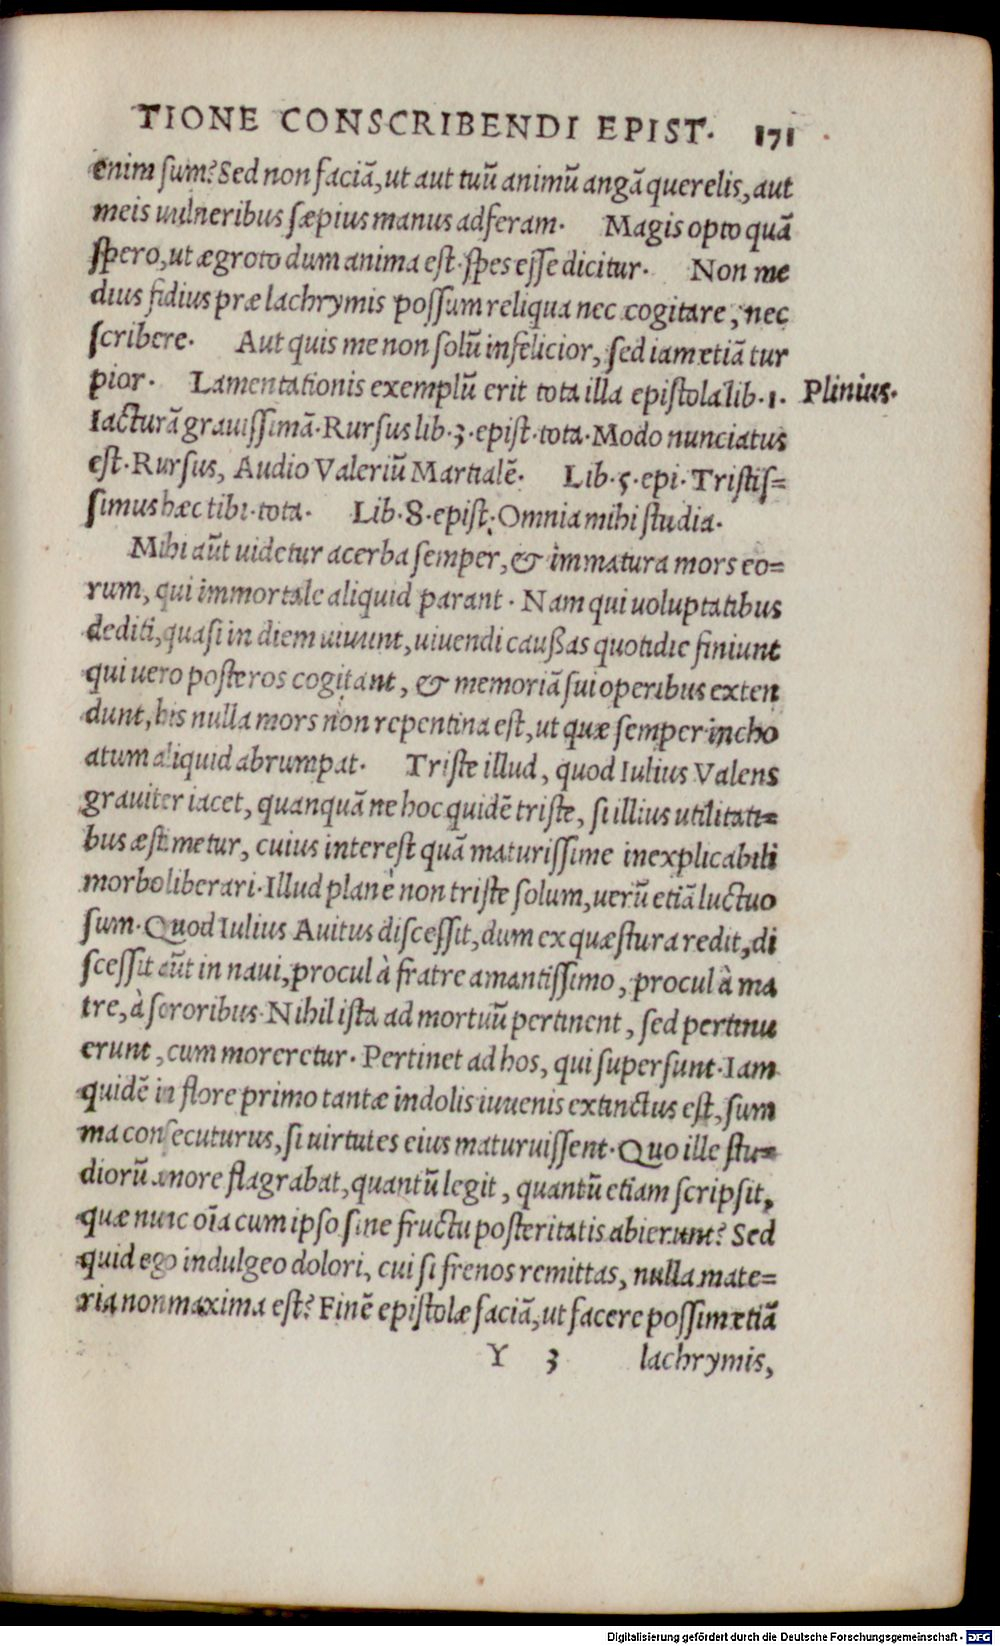 TIONE CONSCRIBENDI EPIST. 171
enim sum? Sed non faciā, ut aut tuū animū angā querelis, aut
meis vulneribus sæpius manus adferam. Magis opto quā
spero, ut ægroto dum anima est. spes esse dicitur. Non me
dius fidius præ lachrymis possum reliqua nec cogitare, nec
scribere. Aut quis me non solū infelicior, sed iam etiā tur
pior. Lamentationis exemplū erit tota illa epistola lib. 1.
Plinius.
Iacturā grauissimā. Rursus lib. 3. epist. tota. Modo nunciatus
est. Rursus, Audio Valeriū Martialē. Lib. 5. epi. Tristis=
simus hæc tibi. tota. Lib. 8. epist. Omnia mihi studia.
Mihi aūt uidetur acerba semper, & immatura mors eo=
rum, qui immortale aliquid parant. Nam qui uoluptatibus
dediti, quasi in diem uiuunt, uiuendi caußas quotidie finiunt
qui uero posteros cogitant, & memoriā sui operibus exten
dunt, his nulla mors non repentina est, ut quæ semper incho
atum aliquid abrumpat. Triste illud, quod Iulius Valens
grauiter iacet, quanquā ne hoc quidē triste, si illius utilitati=
bus æstimetur, cuius interest quā maturissime inexplicabili
morbo liberari. Illud planè non triste solum, uerū etiā luctuo
sum. Quod Iulius Auitus discessit, dum ex quæstura redit, di
scessit aūt in naui, procul à fratre amantissimo, procul à ma
tre, à sororibus. Nihil ista ad mortuū pertinent, sed pertinu
erunt, cum moreretur. Pertinet ad hos, qui supersunt. Iam
quidē in flore primo tantæ indolis iuuenis extinctus est, sum
ma consecuturus, si uirtutes eius maturuissent. Quo ille stu=
diorū amore flagrabat, quantū legit, quantū etiam scripsit,
quæ nunc oīa cum ipso sine fructu posteritatis abierunt? Sed
quid ego indulgeo dolori, cui si frenos remittas, nulla mate=
ria non maxima est? Finē epistolæ faciā, ut facere possim etiā
Y 3 lachrymis,
Digitalisierung gefördert durch die Deutsche Forschungsgemeinschaft - DFG